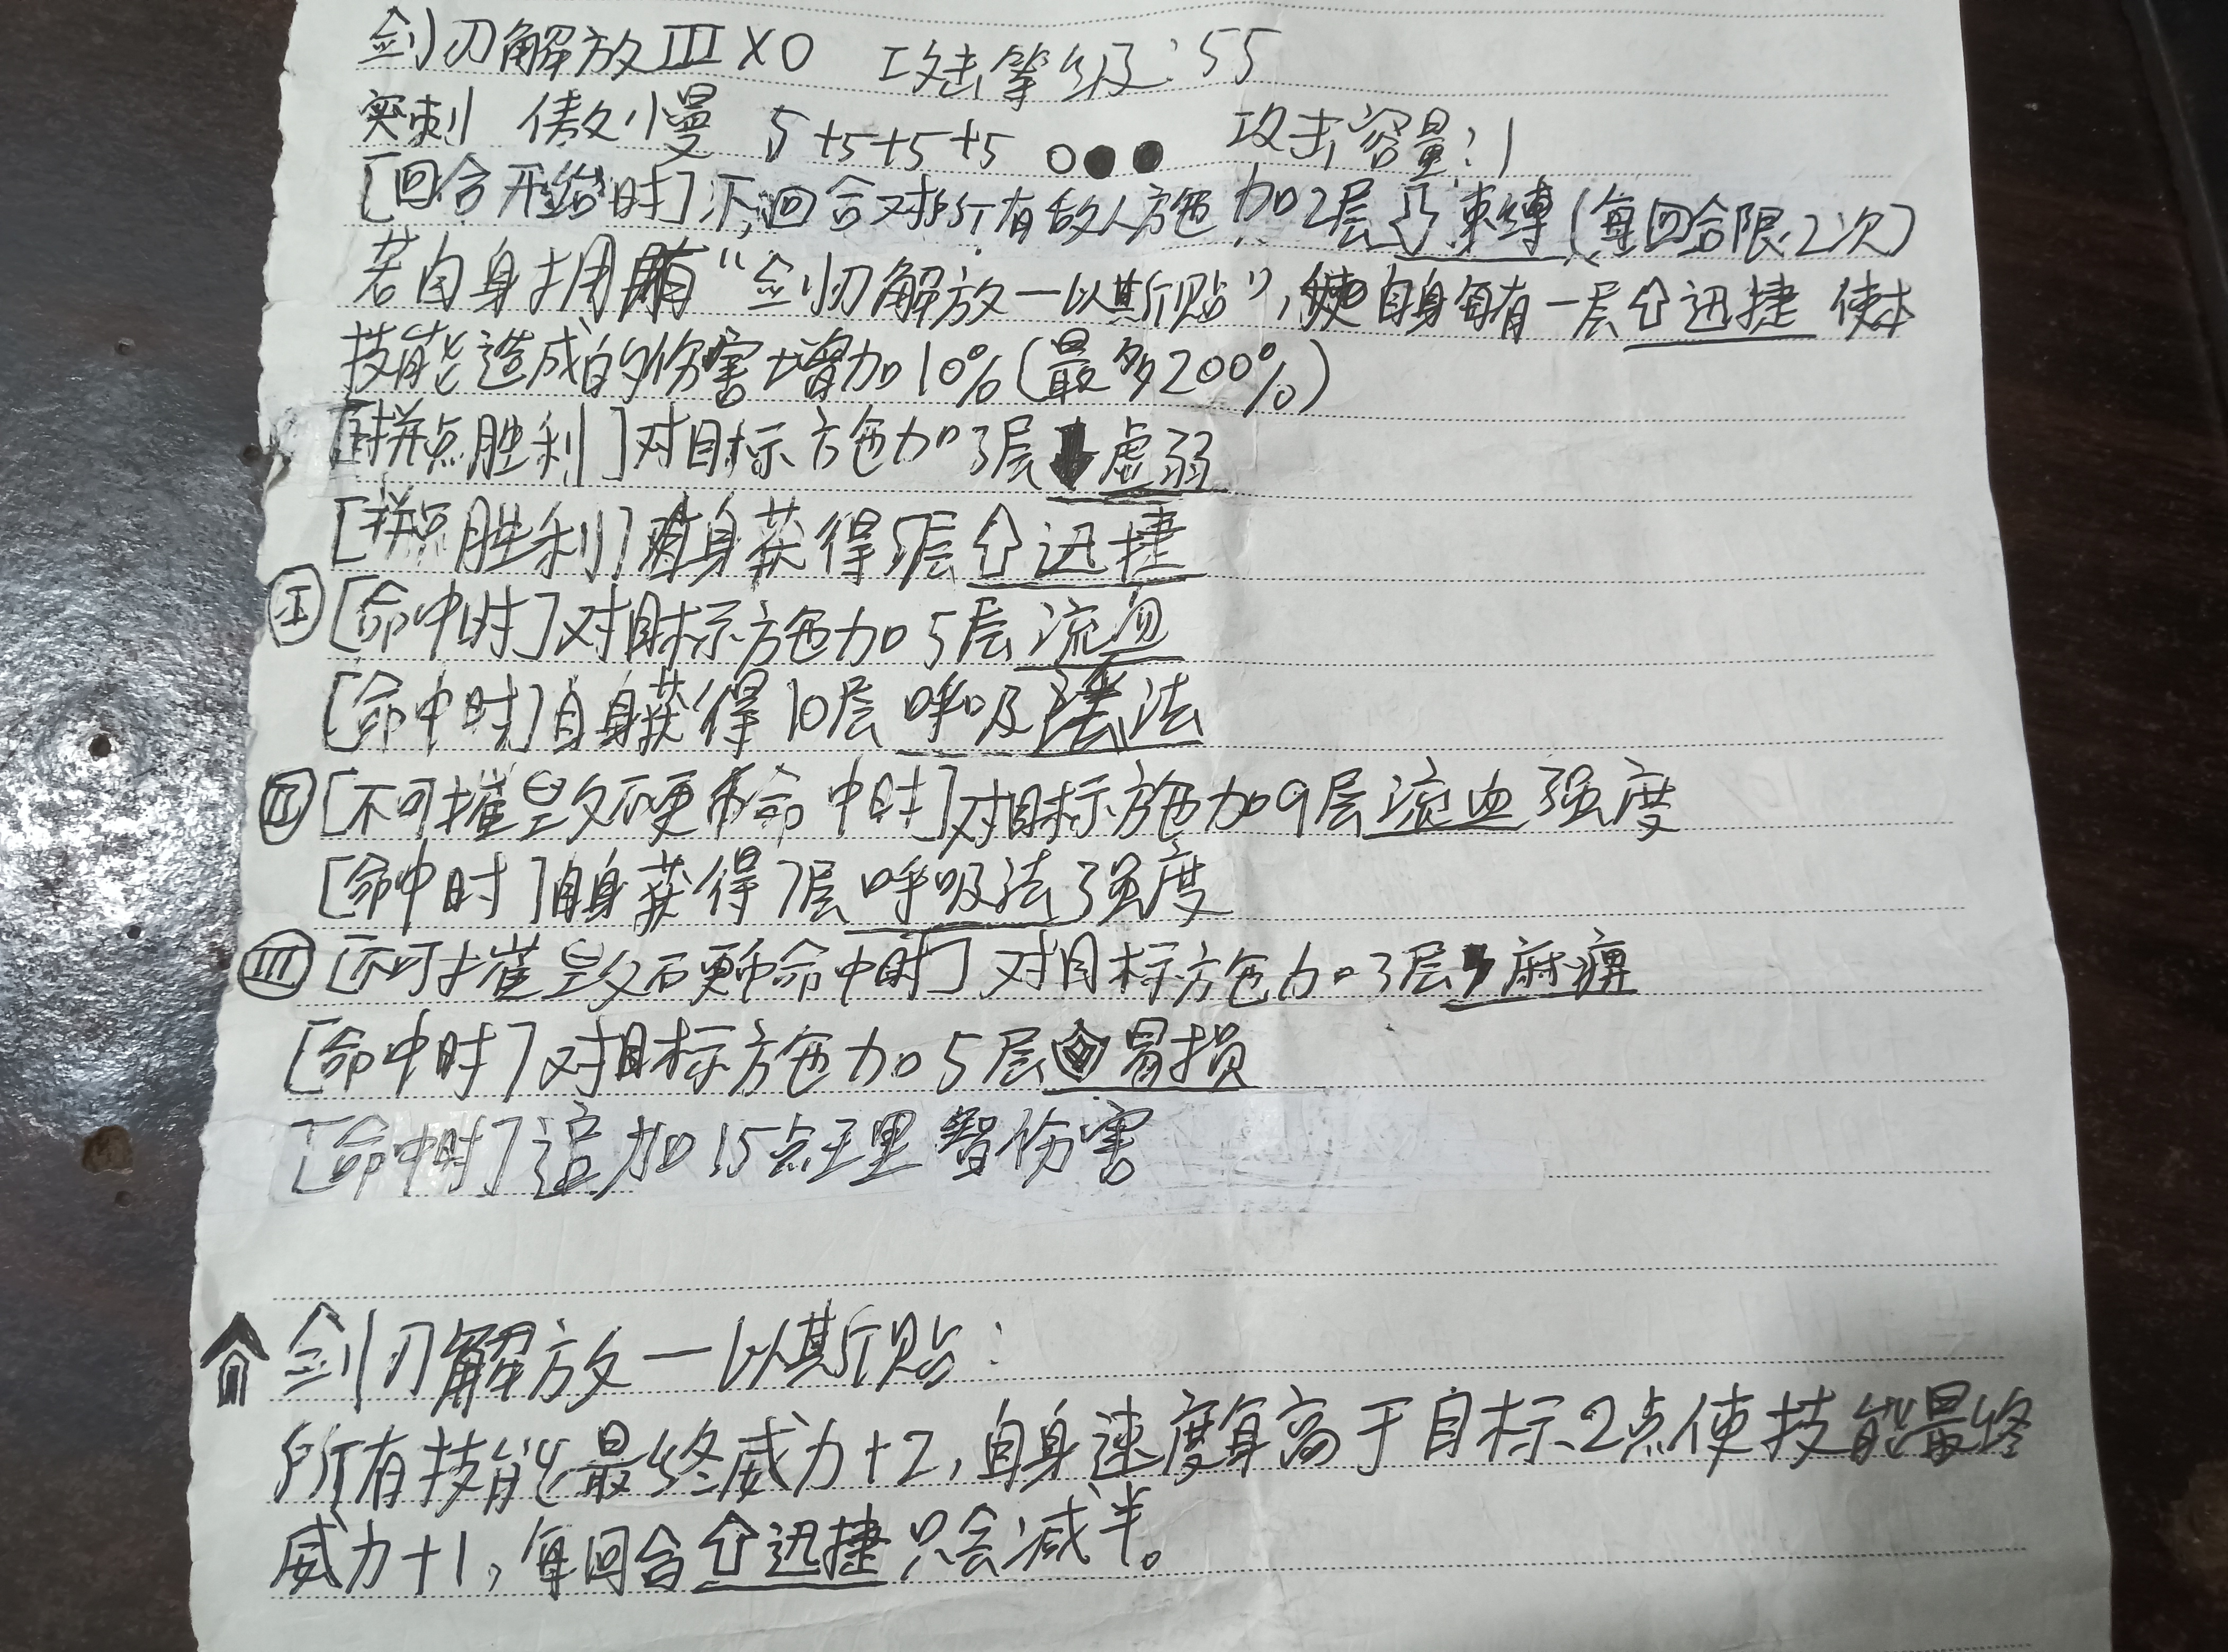 剑刃解放III X0 攻击等级:55
突刺 傲慢 5+5+5+5 ○●● 攻击容量:1
[回合开始时]下回合对所有敌人施加2层⇩束缚(每回合限2次)
若自身拥有“剑刃解放一以斯贴”,使自身每有一层⇧迅捷 使本
技能造成的伤害增加10%(最多200%)
[拼点胜利]对目标施加3层⬇虚弱
[拼点胜利]自身获得5层⇧迅捷
Ⅰ[命中时]对目标施加5层流血
[命中时]自身获得10层呼吸法
Ⅱ[不可摧毁硬币命中时]对目标施加9层流血强度
[命中时]自身获得7层呼吸法强度
Ⅲ[不可摧毁硬币命中时]对目标施加3层麻痹
[命中时]对目标施加5层胃损
[命中时]追加15点理智伤害
剑刃解放一以斯贴:
所有技能最终威力+2,自身速度每高于目标2点使技能最终
威力+1,每回合⇧迅捷只会减半。